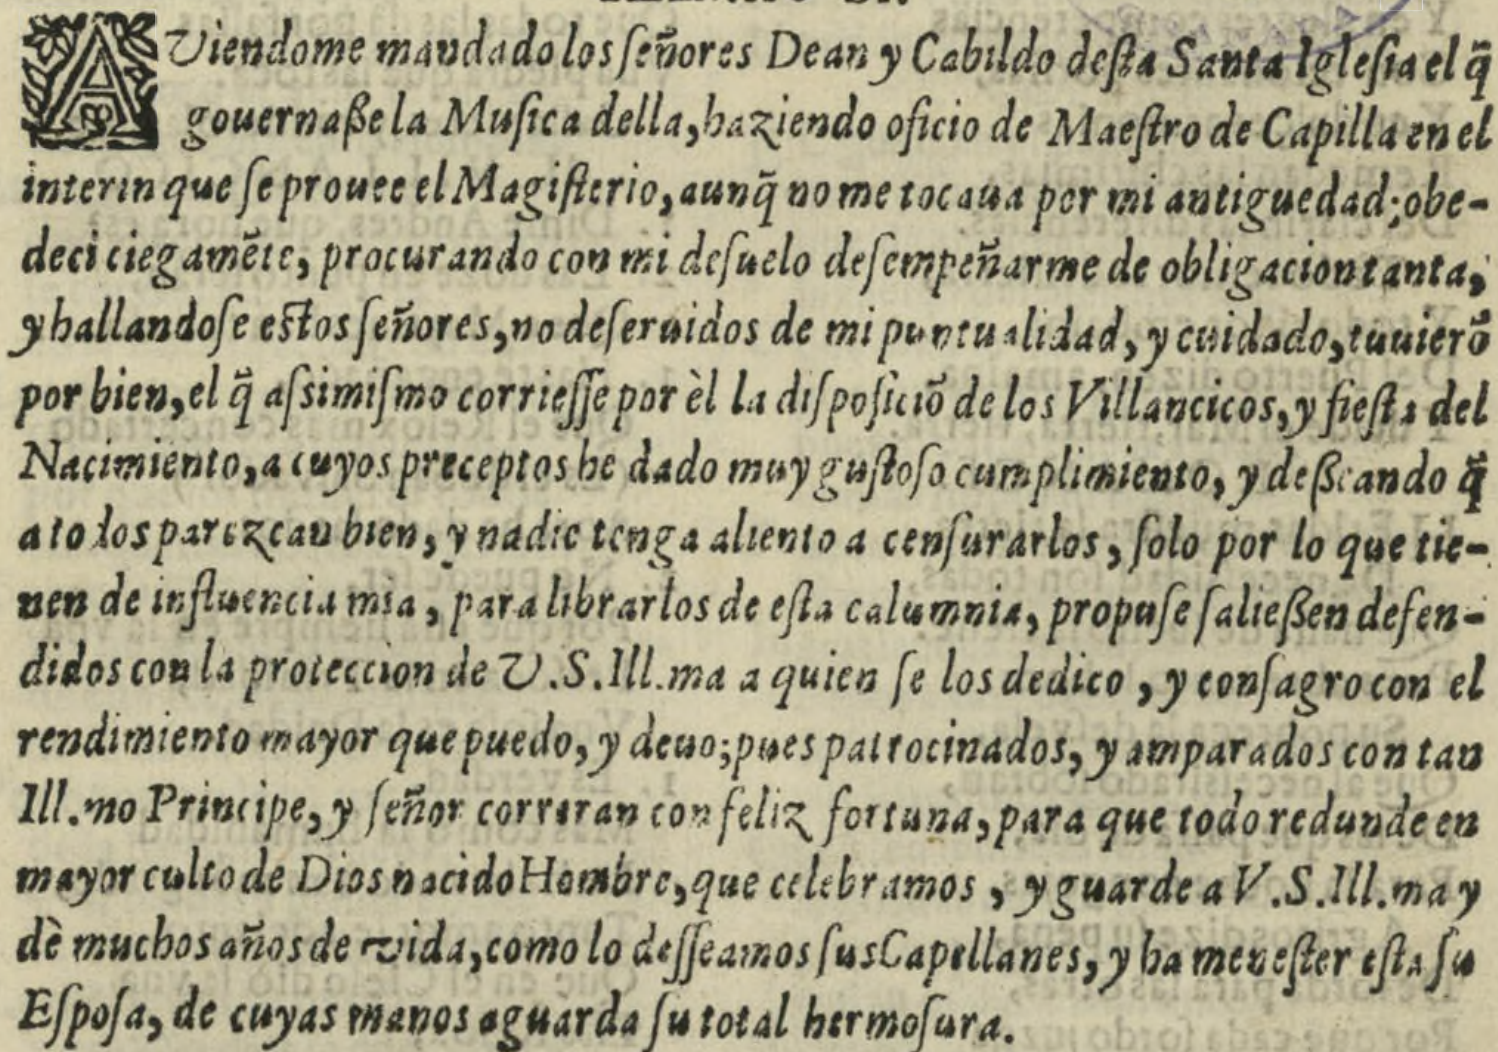 AViendome mandado los ſeñores Dean y Cabildo deſta Santa Igleſia el q̃
gouernaßela Muſica della, haziendo oficio de Maeſtro de Capilla en el
interin que ſe prouee el Magiſterio, aunq̃ no me tocaua por mi antiguedad; obe-
deci ciegamẽte, procurando con mi deſuelo deſempeñarme de obligacion tanta,
y hallandoſe eſtos ſeñores, no deſeruidos de mi puntualidad, y cuidado, tuuierõ
por bien, el q̃ aſsimiſmo corrieſſe por èl la diſpoſiciõ de los Villancicos, y fieſta del
Nacimiento, a cuyos preceptos he dado muy guſtoſo cumplimiento, y deßeando q̃
a todos parezcan bien, y nadie tenga aliento a cenſurarlos, ſolo por lo que tie-
nen de influencia mia, para librarlos de eſta calumnia, propuſe ſaließen defen-
didos con la proteccion de V.S.Ill.ma a quien ſe los dedico, y conſagro con el
rendimiento mayor que puedo, y deuo; pues patrocinados, y amparados con tan
Ill.mo Principe, y ſeñor correran con feliz fortuna, para que todo redunde en
mayor culto de Dios nacido Hombre, que celebramos, y guarde a V.S.Ill.ma y
dè muchos años de vida, como lo deſſeamos ſus Capellanes, y ha meneſter eſta ſu
Eſpoſa, de cuyas manos aguarda ſu total hermoſura.